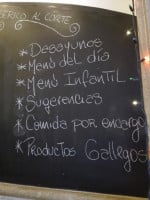 AL CORTE
*Desayunos
*Menú del día
*Menú InfantIL
*Sugerencias
*Comida por encargo
*Productos Gallegos